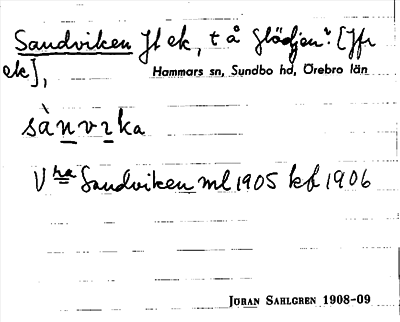 Sandviken Jl ek, t å Glädjen". [Jfr
ek],
Hammars sn, Sundbo hd, Örebro län
sànvıka
Vra Sandviken ml 1905 kf 1906
JÖRAN SAHLGREN 1908-09